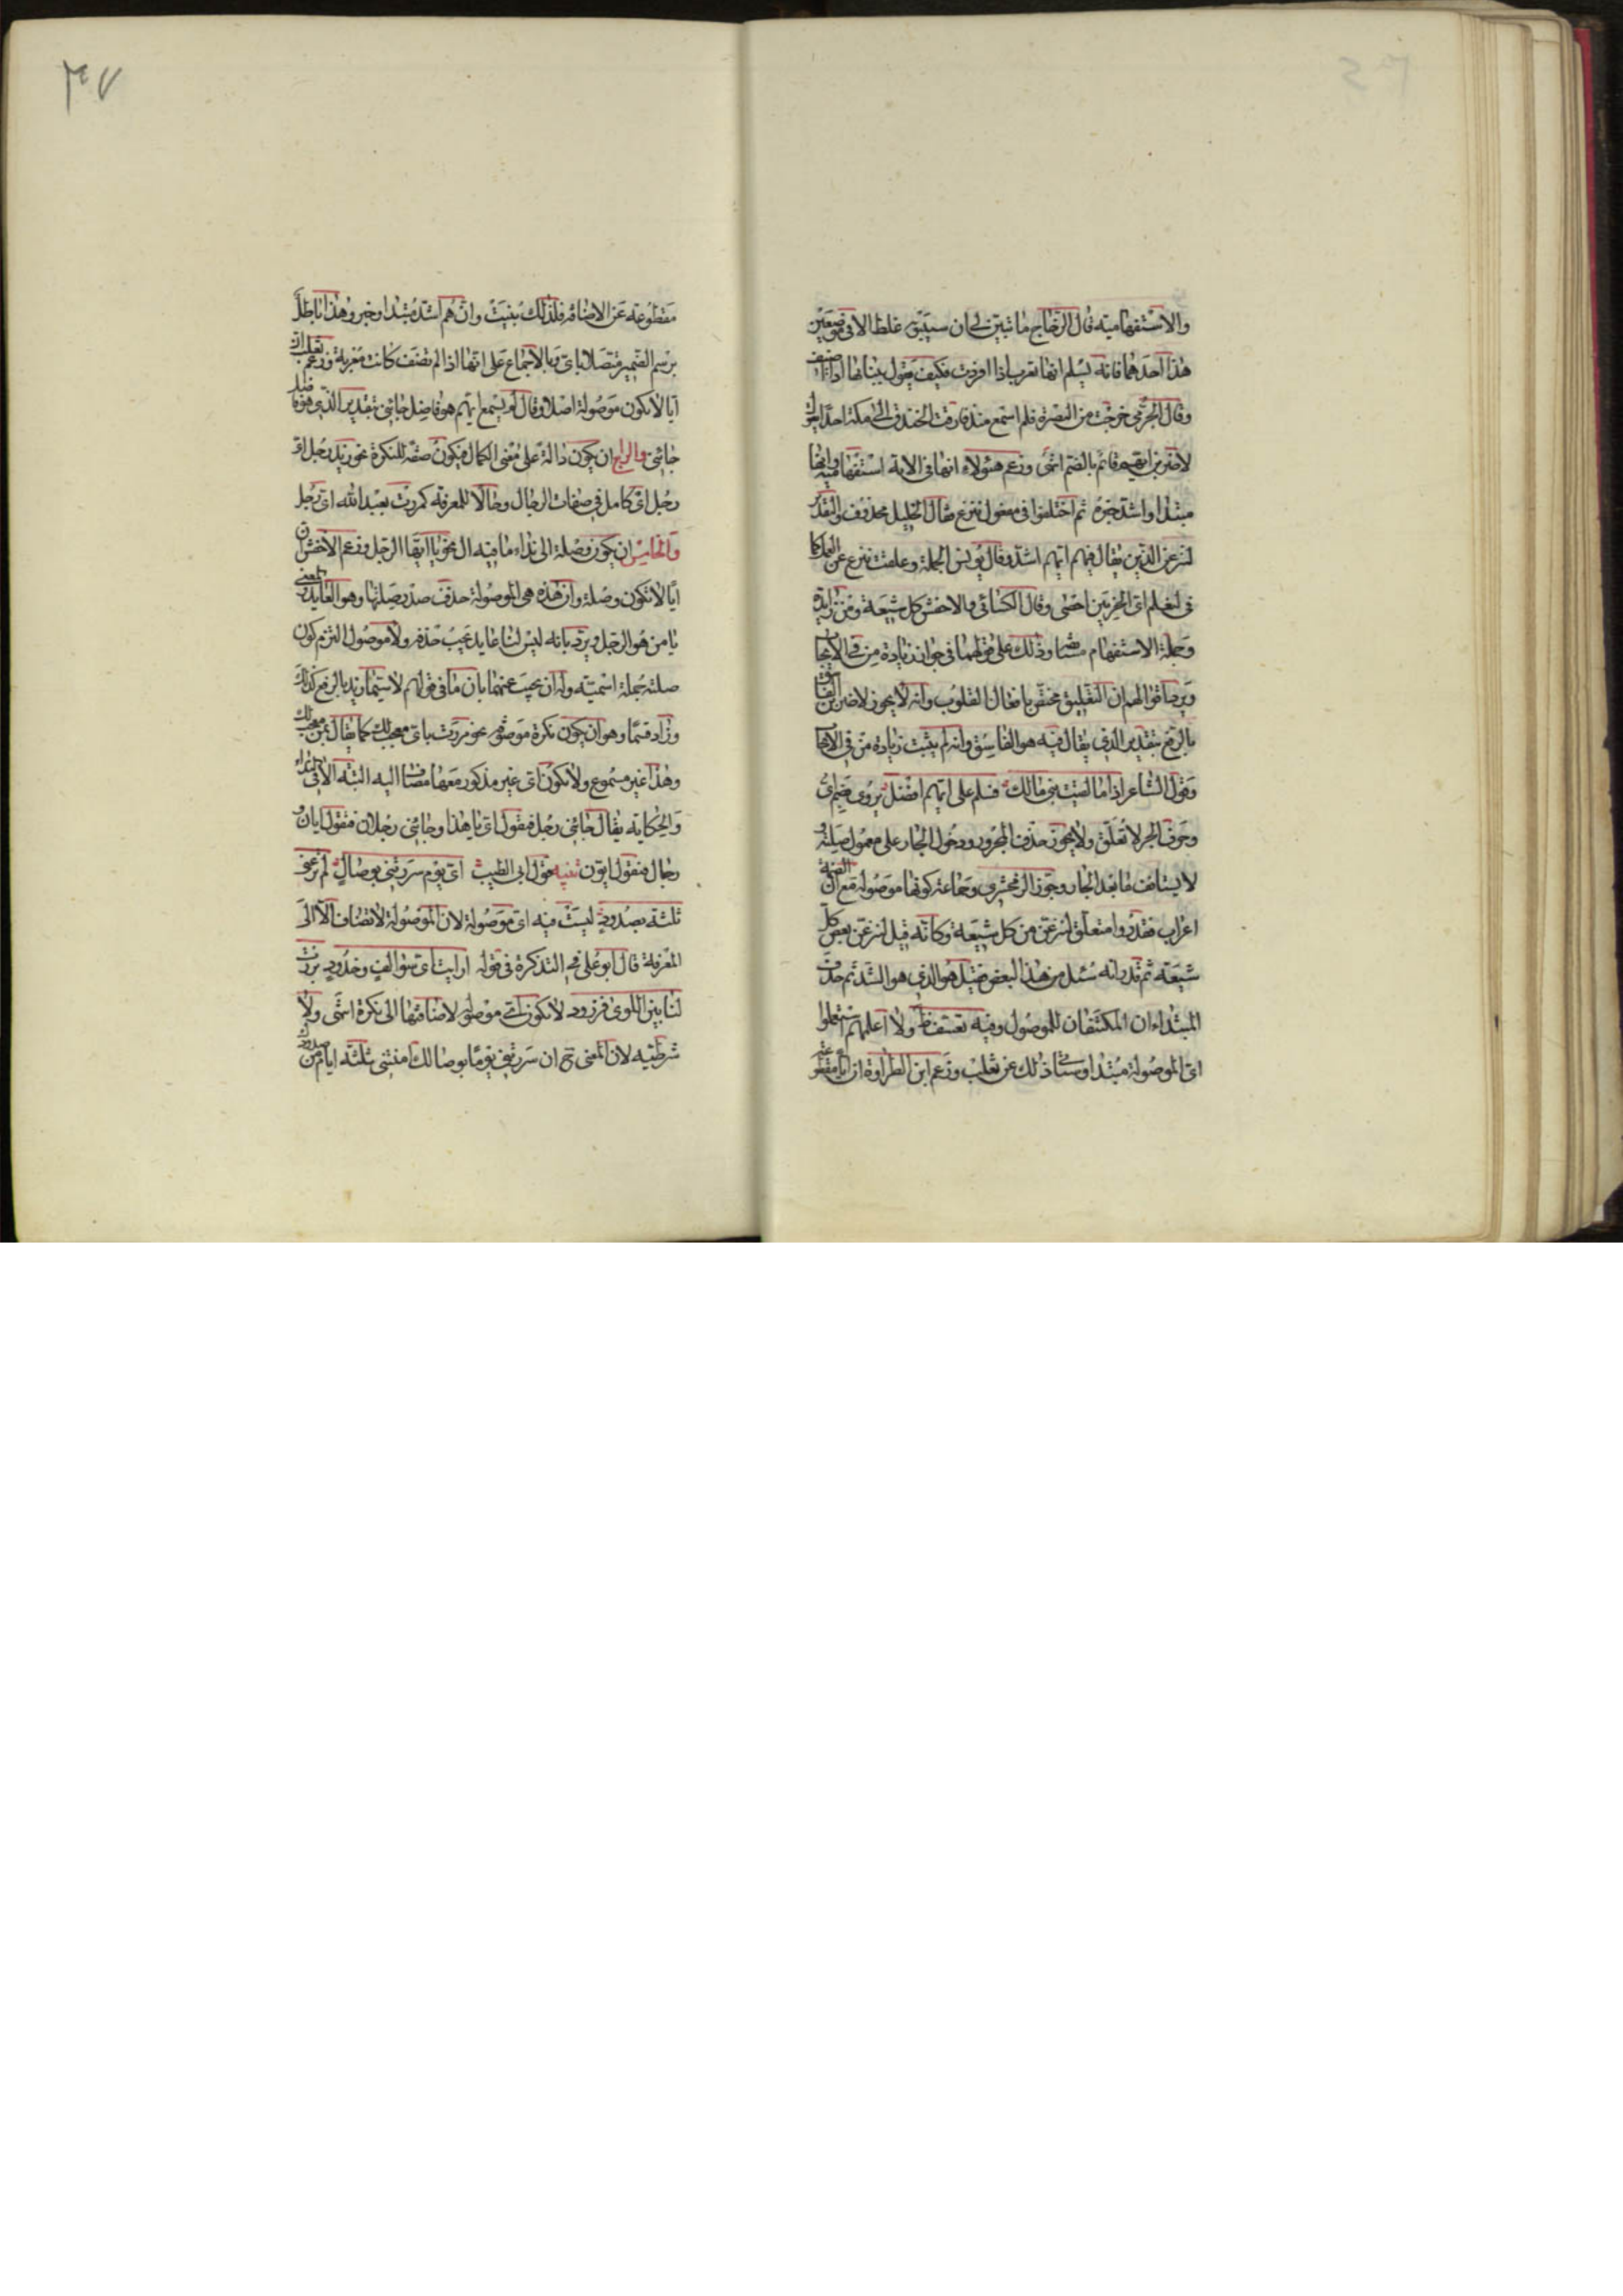 والاستفهامية قال الزجاج ما تبين لي ان سيبويه غلط الا في موضعين
هذا احدهما فانه يسلم انها تعرب اذا افردت فكيف يقول ببنائها اذا اضيفت
وقال الجرمي خرجت من البصرة فلم اسمع منذ فارقت الخندق الى مكة احدا يقول
لاضربن ايهم قائم بالضم انتهى وزعم هؤلاء انها في الاية استفهامية وانها
مبتدا واشد خبره ثم اختلفوا في مفعول ننزع فقال الخليل محذوف والتقدير
لننزعن الذين يقال فيهم ايهم اشد وقال يونس الجملة وعلقت ننزع عن العمل كما
في لنعلم اى الحزبين احصى وقال الكسائي والاخفش كل شيعة ومن زايدة
وجملة الاستفهام مستانفة وذلك على قولهما في جواز زيادة من في الايجاب
ويرد اقوالهم ان التعليق مختص بافعال القلوب وانه لا يجوز لاضربن الفاسق
بالرفع بتقدير الذي يقال فيه هو الفاسق وانه لم يثبت زيادة من في الايجاب
وقول الشاعر اذا ما لقيت بني مالك فسلم على ايهم افضل يروى بضم اى
وحروف الجر لا تعلق ولا يجوز حذف المجرور ودخول الجار على معمول صلته و
لا يستانف ما بعد الجار وجوز الزمخشري وجماعة كونها موصولة مع ان الضمة
اعراب فقدروا متعلق لننزعن من كل شيعة وكانه قيل لننزعن بعض كل
شيعة ثم قدر انه سئل من هذا البعض فقيل هو الذي هو اشد ثم حذف
المبتداءان المكتنفان للموصول وفيه تعسف ظاهر ولا اعلمهم استعملوا
اى الموصولة مبتدا وسياتي ذلك عن ثعلب وزعم ابن الطراوة ان ايا مقطوعة
۳۷
مقطوعة عن الاضافة فلذلك بنيت وان هم اشد مبتدا وخبر وهذا باطل
برسم الضمير متصلا باى وبالاجماع على انها اذا لم تضف كانت معربة وزعم ثعلب ان
ايا لا تكون موصولة اصلا وقال لم يسمع ايهم هو فاضل جائني بتقدير الذي هو فاضل
جائني والرابع ان يكون دالة على معنى الكمال فيكون صفة للنكرة نحو زيد رجل اى
رجل اى كامل في صفات الرجال وحالا للمعرفة كمررت بعبد الله اى رجل
والخامس ان يكون وصلة الى نداء ما فيه ال نحو يا ايها الرجل وزعم الاخفش ان
ايا لا تكون وصلة وان هذه هي الموصولة حذف صدر صلتها وهو العايد والمعنى
يا من هو الرجل ويرد بانه ليس لنا عايد يجب حذفه ولا موصول التزم كون
صلته جملة اسمية وله ان يجيب عنهما بان ما في قولهم لا سيما زيد بالرفع كذلك
وزاد قسما وهو ان يكون نكرة موصوفة نحو مررت باى معجب لك كما يقال بمن معجب لك
وهذا غير مسموع ولا تكون اى غير مذكور معها مضاف اليه البتة الا في النداء
والحكاية يقال جائني رجل فيقول اى يا هذا وجائني رجلان فيقول ايان و
رجال فيقول ايون تنبيه قول ابي الطيب اى يوم سررتني بوصال لم ترعني
ثلثة بصدود ليست فيه اى موصولة لان الموصولة لا تضاف الا الى
المعرفة قال ابو علي في التذكرة في قوله ارايت اى سوالف وخدود برزت
لنا بين اللوى فزرود لا تكون اى موصولة لاضافتها الى نكرة انتهى ولا
شرطية لان المعنى ح ان سررتني يوما بوصالك امنتني ثلثة ايام من صدودك